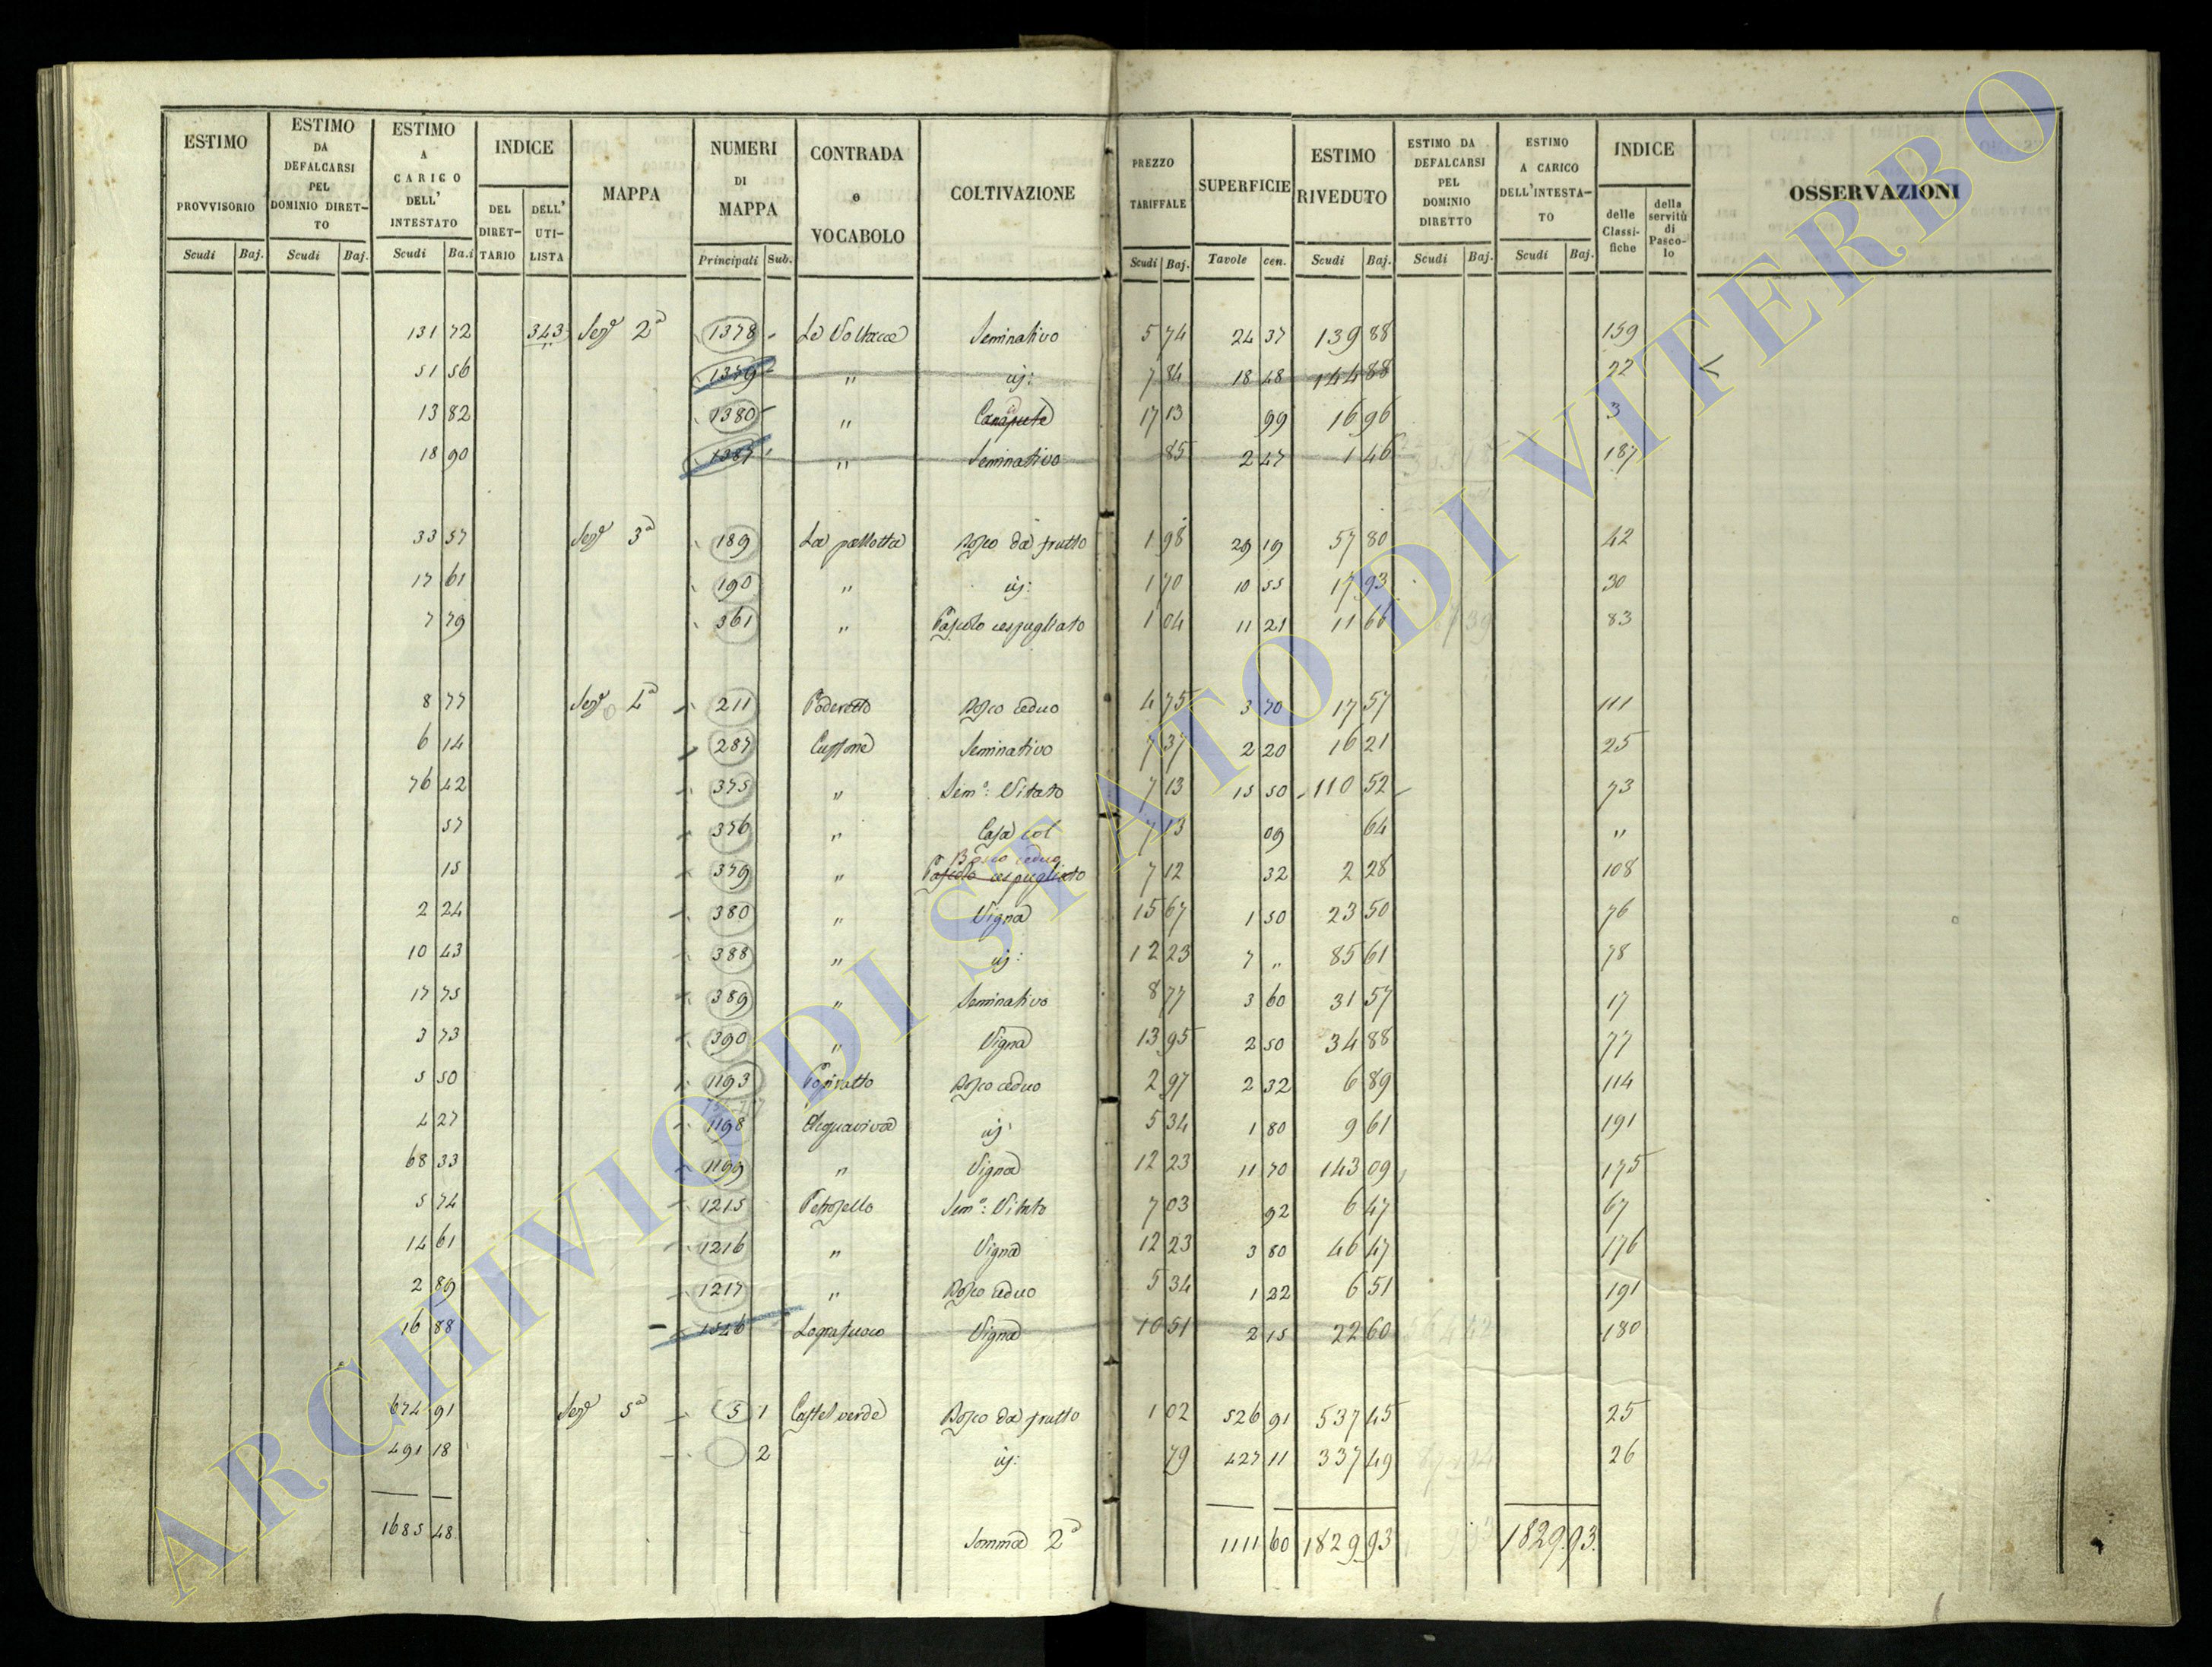 ESTIMO PROVVISORIO Scudi Baj.
ESTIMO DA DEFALCARSI PEL DOMINIO DIRET-TO Scudi Baj.
ESTIMO A CARICO DELL' INTESTATO Scudi Ba.i
INDICE DEL DIRET-TARIO DELL' UTI-LISTA
MAPPA
NUMERI DI MAPPA Principali Sub.
CONTRADA o VOCABOLO
COLTIVAZIONE
PREZZO TARIFFALE Scudi Baj.
SUPERFICIE Tavole cen.
ESTIMO RIVEDUTO Scudi Baj.
ESTIMO DA DEFALCARSI PEL DOMINIO DIRETTO Scudi Baj.
ESTIMO A CARICO DELL'INTESTA-TO Scudi Baj.
INDICE delle Classi-fiche della servitù di Pasco-lo
OSSERVAZIONI
131 72 343 Sezᵉ 2ª 1378 Seminativo 5 74 24 37 139 88 159
51 56 1379 " id: 7 84 18 48 144 88 22
13 82 1380 " 17 13 99 16 96 3
18 90 1387 " Seminativo 85 2 47 1 46 187
33 57 Sezᵉ 3ª 189 La pallotta Bosco da frutto 1 98 29 19 57 80 42
17 61 190 " id: 1 70 10 55 17 93 30
7 79 361 " Pascolo cespugliato 1 04 11 21 11 66 83
8 77 Sezᵉ 4ª 211 Poderetto Bosco ceduo 4 75 3 70 17 57 111
6 14 287 Seminativo 7 37 2 20 16 21 25
76 42 375 " Semº: Vitato 7 13 15 50 110 52 73
57 376 " Casa col 7 13 09 64 "
15 379 " Bosco ceduo Pascolo cespugliato 7 12 32 2 28 108
2 24 380 " Vigna 15 67 1 50 23 50 76
10 43 388 " id: 12 23 7 " 85 61 78
17 75 389 " Seminativo 8 77 3 60 31 57 17
3 73 390 " Vigna 13 95 2 50 34 88 77
5 50 1193 Bosco ceduo 2 97 2 32 6 89 114
4 27 1198 Acquaviva id: 5 34 1 80 9 61 191
68 33 1199 " Vigna 12 23 11 70 143 09 175
5 74 1215 Petrosello Semº: Vitato 7 03 92 6 47 67
14 61 1216 " Vigna 12 23 3 80 46 47 176
2 89 1217 " Bosco ceduo 5 34 1 22 6 51 191
16 88 1546 Vigna 10 51 2 15 22 60 180
674 91 Sezᵉ 5ª 5 1 Castel verde Bosco da frutto 1 02 526 91 537 45 25
491 18 2 id: 79 427 11 337 49 26
1685 48 Somma 2ª 1111 60 1829 93 1829 93
ARCHIVIO DI STATO DI VITERBO